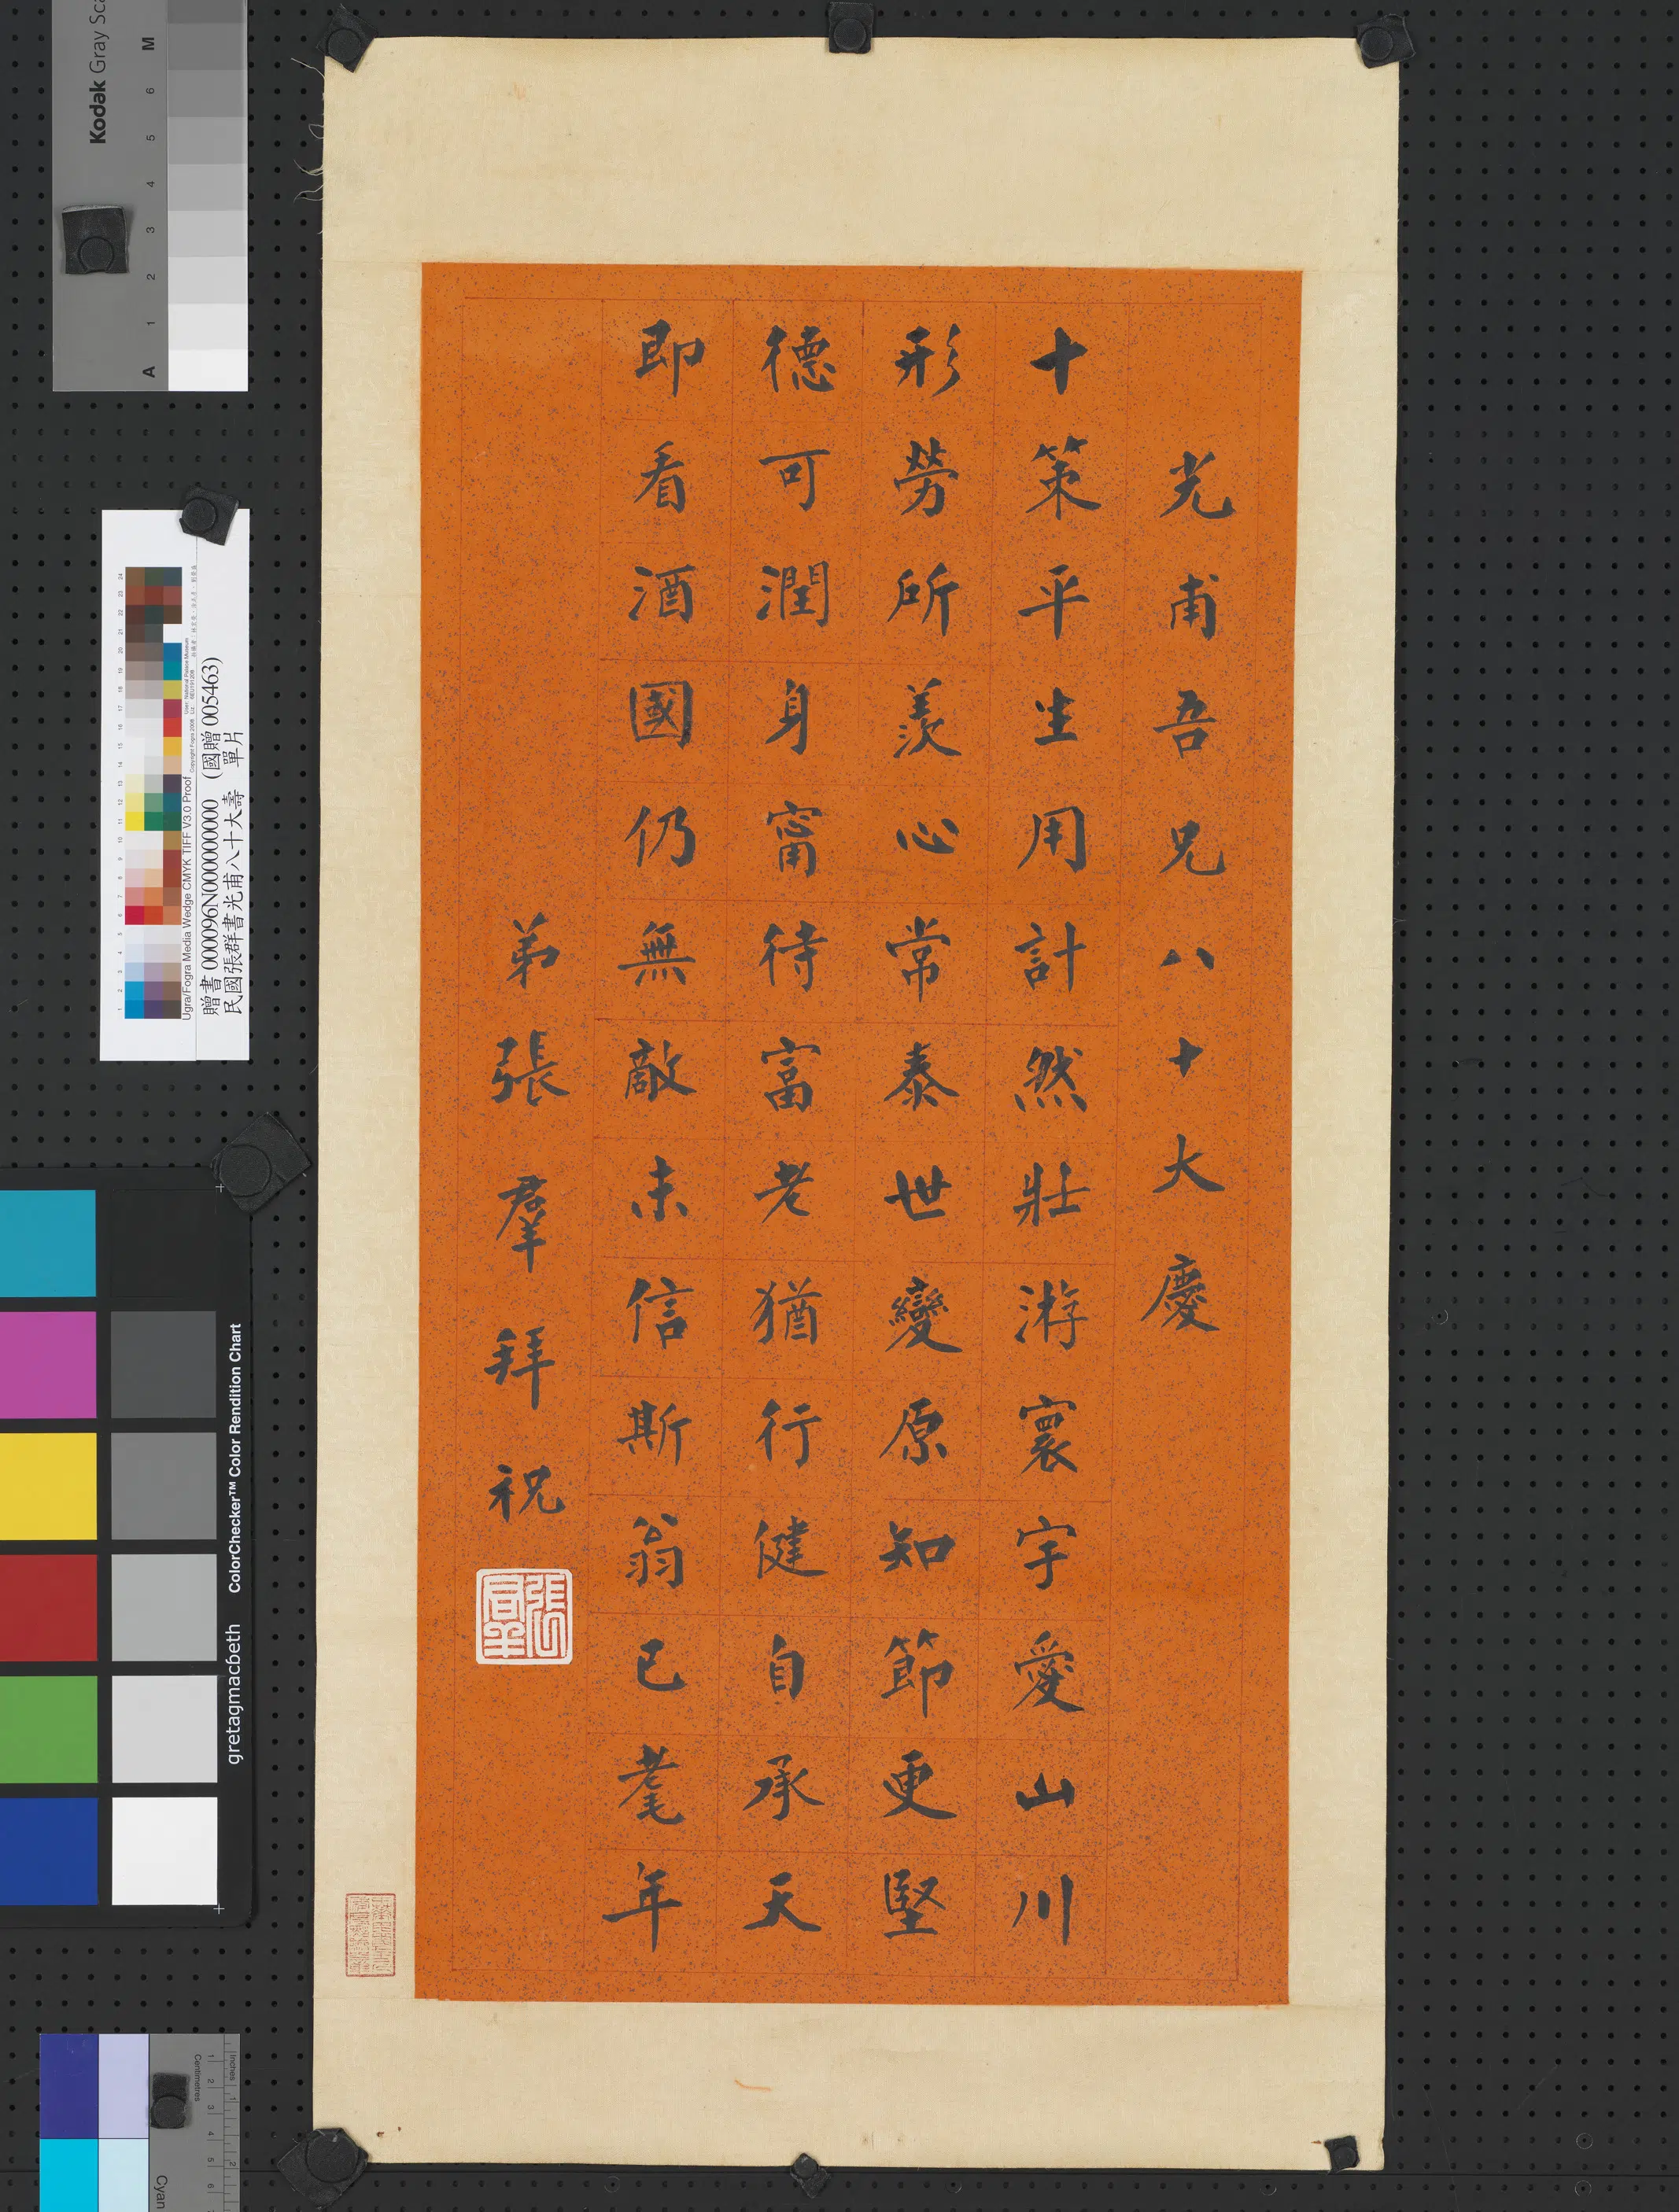 光甫吾兄八十大慶
十策平生用計然壯游寰宇愛山川
形勞所羡心常泰世變原知節更堅
德可潤身甯待富老猶行健自承天
即看酒國仍無敵未信斯翁已耄年
弟張羣拜祝
Kodak Gray Sca
M
6
5
4
3
2
1
A
贈書 000096N000000000 (國贈 005463)
民國張群書光甫八十大壽 單片
Ugra/Fogra Media Wedge CMYK TIFF V3.0 Proof
ColorChecker™ Color Rendition Chart
gretagmacbeth
Inches
Centimetres
Cyan